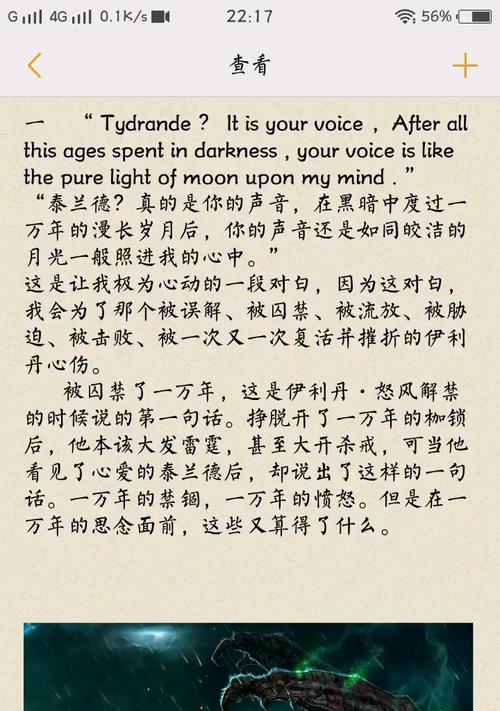 G 4G 0.1K/s 22:17 56%
查看
一 “ Tydrande ？ It is your voice ，After all
this ages spent in darkness , your voice is like
the pure light of moon upon my mind . ”
“泰兰德？真的是你的声音，在黑暗中度过一
万年的漫长岁月后，你的声音还是如同皎洁的
月光一般照进我的心中。”
这是让我极为心动的一段对白，因为这对白，
我会为了那个被误解、被囚禁、被流放、被胁
迫、被击败、被一次又一次复活并摧折的伊利
丹心伤。
被囚禁了一万年，这是伊利丹·怒风解禁
的时候说的第一句话。挣脱开了一万年的枷锁
后，他本该大发雷霆，甚至大开杀戒，可当他
看见了心爱的泰兰德后，却说出了这样的一句
话。一万年的禁锢，一万年的愤怒。但是在一
万年的思念面前，这些又算得了什么。